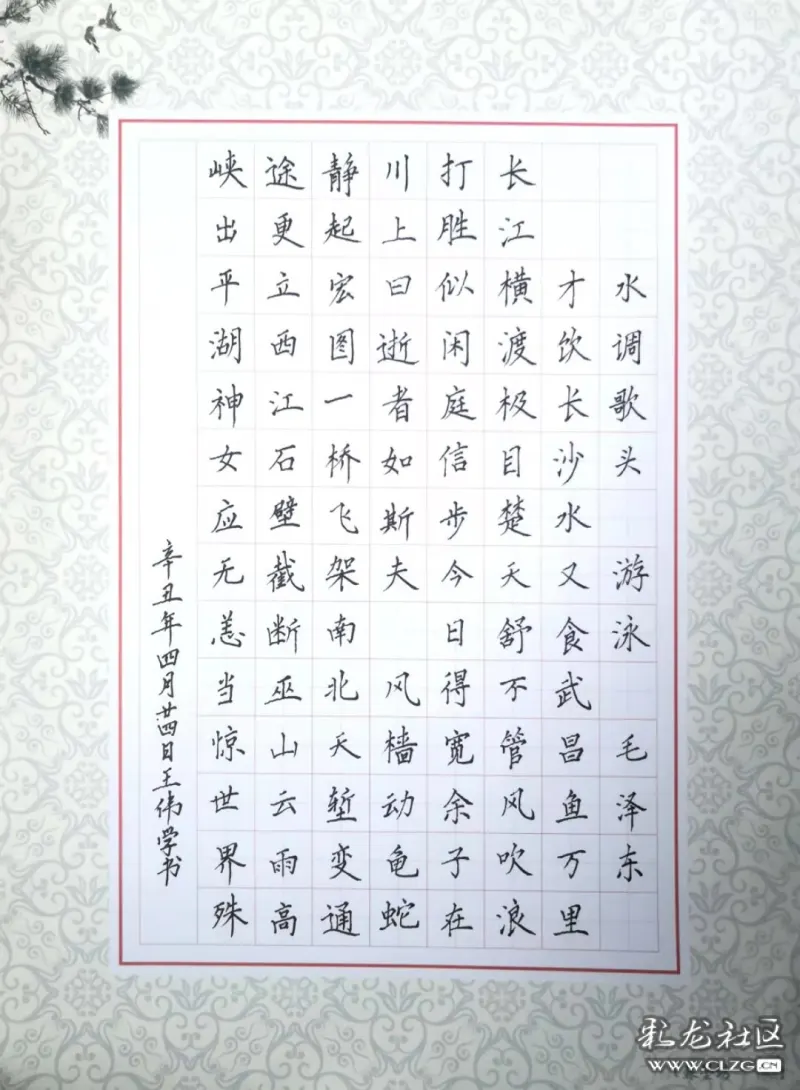 水调歌头 游泳 毛泽东
才饮长沙水 又食武昌鱼万里
长江横渡极目楚天舒不管风吹浪
打胜似闲庭信步今日得宽余子在
川上曰逝者如斯夫 风樯动龟蛇
静起宏图一桥飞架南北天堑变通
途更立西江石壁截断巫山云雨高
峡出平湖神女应无恙当惊世界殊
辛丑年四月廿四日王伟学书
彩龙社区
WWW.CLZG.CN